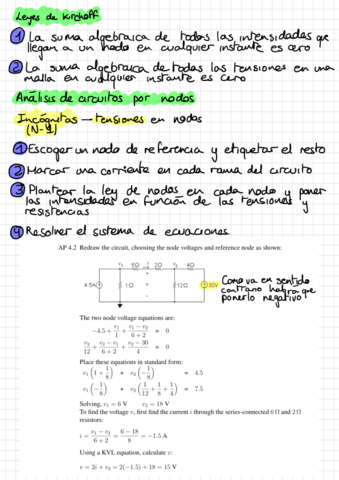 Leyes de Kirchoff
1 La suma algebraica de todas las intensidades que
llegan a un nodo en cualquier instante es cero
2 La suma algebraica de todas las tensiones en una
malla en cualquier instante es cero
Análisis de circuitos por nodos
Incógnitas — tensiones en nodos
(N-1)
1 Escoger un nodo de referencia y etiquetar el resto
2 Marcar una corriente en cada rama del circuito
3 Plantear la ley de nodos en cada nodo y poner
las intensidades en función de las tensiones y
resistencias
4 Resolver el sistema de ecuaciones
AP 4.2 Redraw the circuit, choosing the node voltages and reference node as shown:
v₁ 6Ω i 2Ω v₂ 4Ω
4.5A 1Ω v 12Ω 30V
Como va en sentido
contrario habrá que
ponerlo negativo
The two node voltage equations are:
−4.5 + v₁/1 + (v₁ − v₂)/(6 + 2) = 0
v₂/12 + (v₂ − v₁)/(6 + 2) + (v₂ − 30)/4 = 0
Place these equations in standard form:
v₁(1 + 1/8) + v₂(−1/8) = 4.5
v₁(−1/8) + v₂(1/12 + 1/8 + 1/4) = 7.5
Solving, v₁ = 6 V v₂ = 18 V
To find the voltage v, first find the current i through the series-connected 6 Ω and 2 Ω
resistors:
i = (v₁ − v₂)/(6 + 2) = (6 − 18)/8 = −1.5 A
Using a KVL equation, calculate v:
v = 2i + v₂ = 2(−1.5) + 18 = 15 V